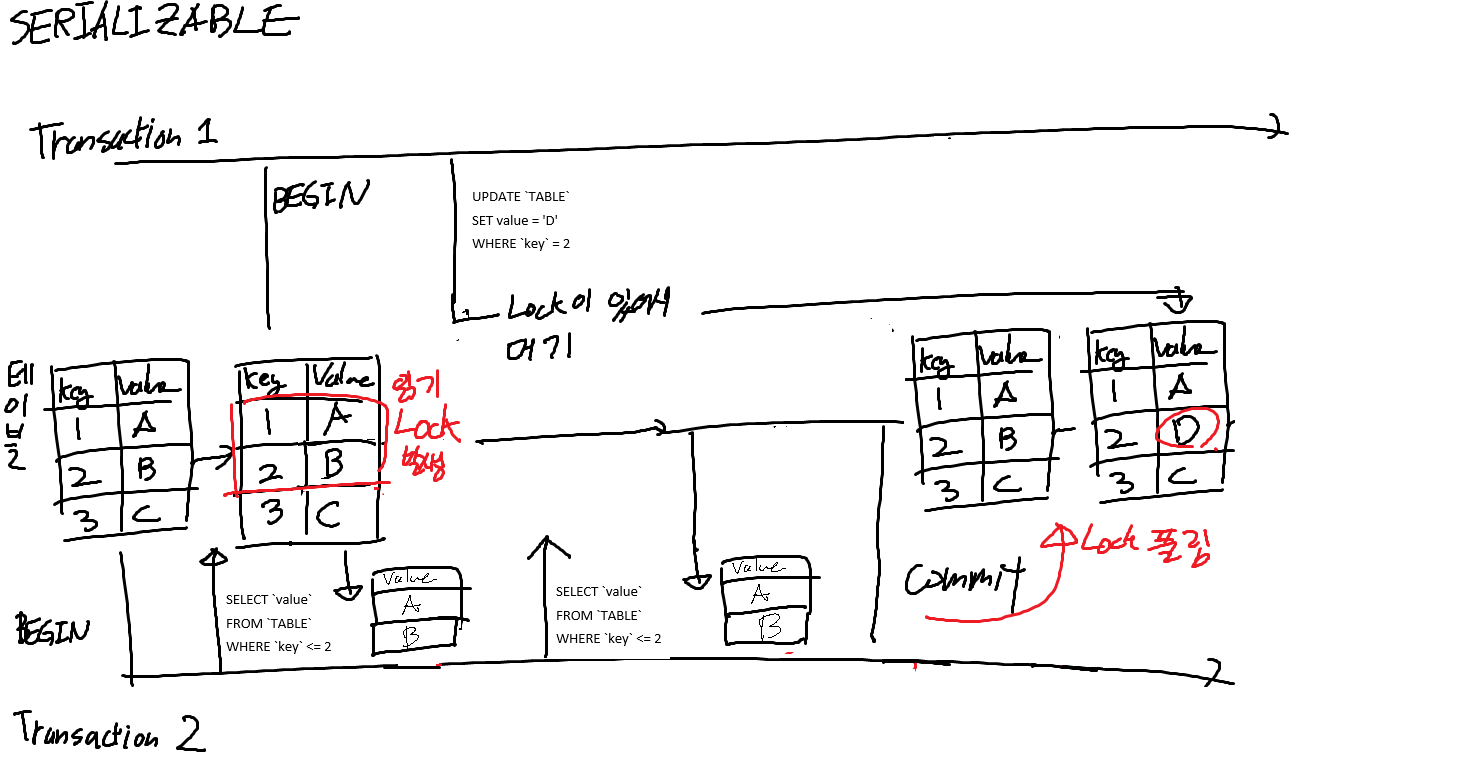 SERIALIZABLE
Transaction 1
BEGIN
UPDATE `TABLE`
SET value = 'D'
WHERE `key` = 2
Lock이 있어서
대기
테이블
key Value
1 A
2 B
3 C
key Value
1 A
2 B
3 C
읽기
Lock
발생
key Value
1 A
2 B
3 C
key Value
1 A
2 D
3 C
Lock 풀림
Commit
BEGIN
SELECT `value`
FROM `TABLE`
WHERE `key` <= 2
Value
A
B
SELECT `value`
FROM `TABLE`
WHERE `key` <= 2
Value
A
B
Transaction 2